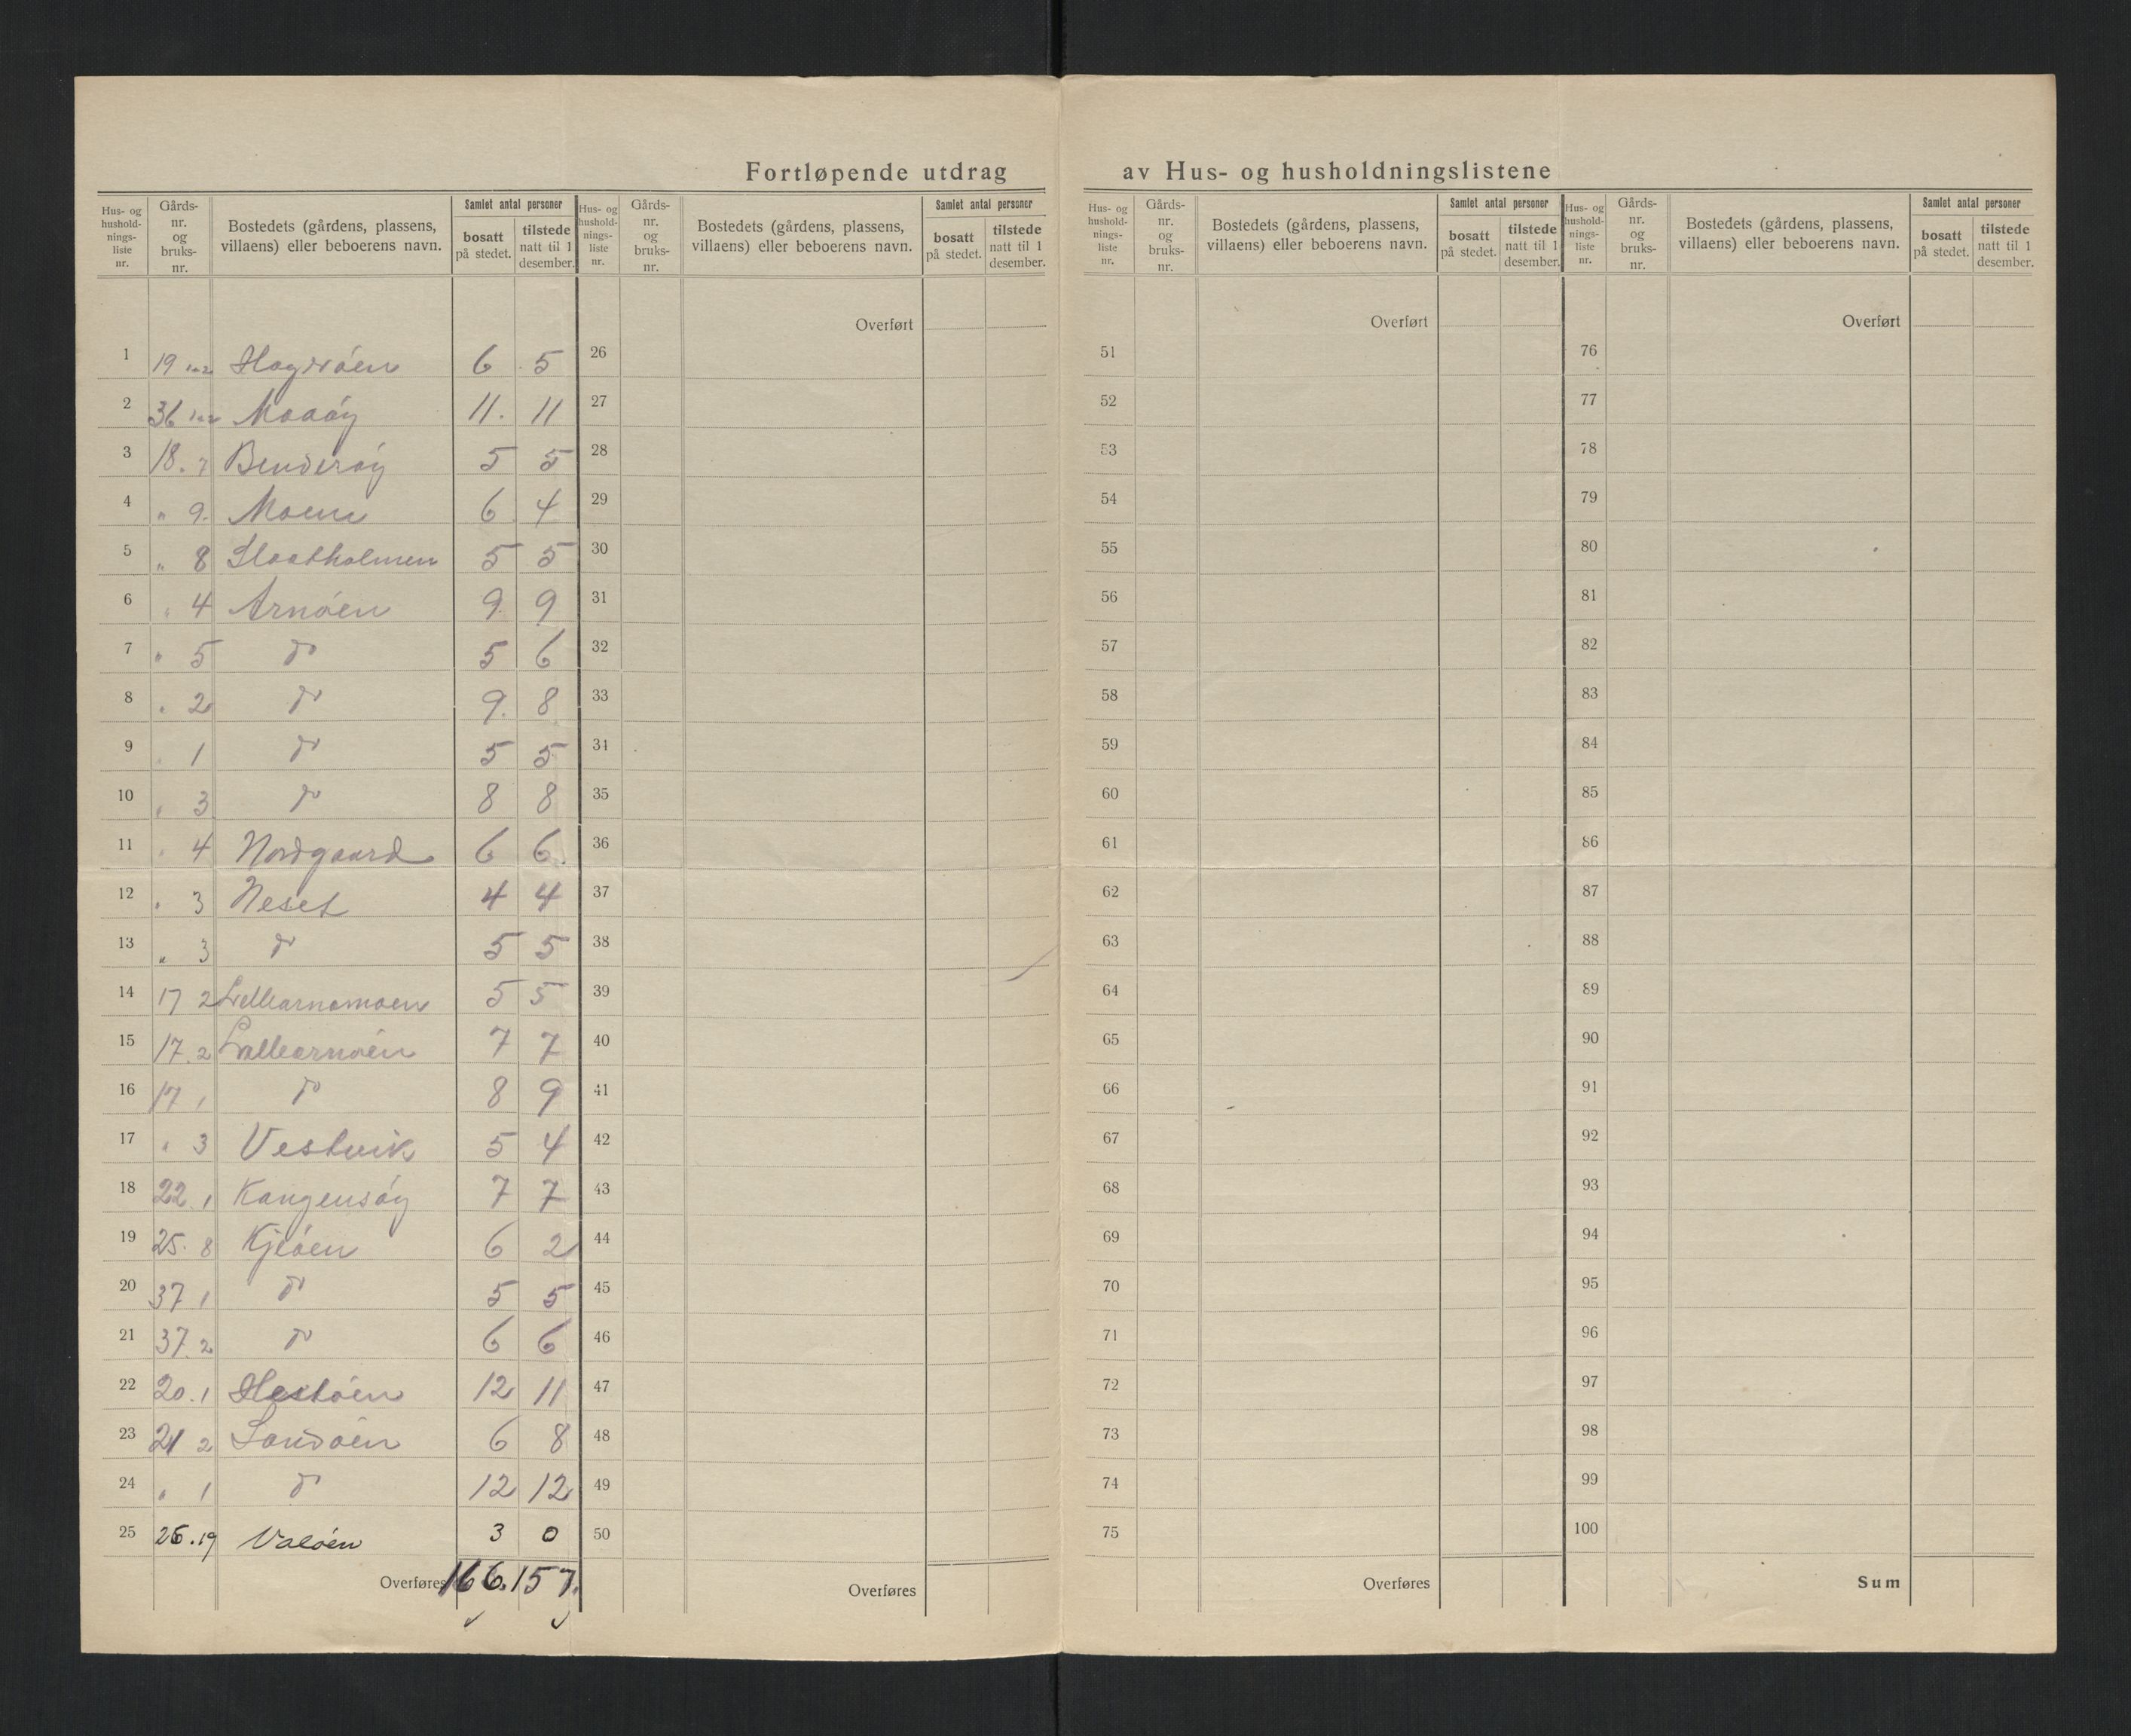 Fortløpende utdrag av Hus- og husholdningslistene
Hus- og hushold-nings-liste nr. Gårds-nr. og bruks-nr. Bostedets (gårdens, plassens, villaens) eller beboerens navn. Samlet antal personer bosatt på stedet. tilstede natt til 1 desember.
Hus- og hushold-nings-liste nr. Gårds-nr. og bruks-nr. Bostedets (gårdens, plassens, villaens) eller beboerens navn. Samlet antal personer bosatt på stedet. tilstede natt til 1 desember.
Hus- og hushold-nings-liste nr. Gårds-nr. og bruks-nr. Bostedets (gårdens, plassens, villaens) eller beboerens navn. Samlet antal personer bosatt på stedet. tilstede natt til 1 desember.
Hus- og hushold-nings-liste nr. Gårds-nr. og bruks-nr. Bostedets (gårdens, plassens, villaens) eller beboerens navn. Samlet antal personer bosatt på stedet. tilstede natt til 1 desember.
Overført Overført Overført
1 19 1-2 6 5 26 51 76
2 36 1-2 Maaöy 11. 11 27 52 77
3 18. 7 Benderöy 5 5 28 53 78
4 " 9. Moen 6 4 29 54 79
5 " 8 5 5 30 55 80
6 " 4 Arnöen 9 9 31 56 81
7 " 5 do 5 6 32 57 82
8 " 2 do 9. 8 33 58 83
9 " 1 do 5 5 34 59 84
10 " 3 do 8 8 35 60 85
11 " 4 Nordgaard 6 6. 36 61 86
12 " 3 Neset 4 4 37 62 87
13 " 3 do 5 5 38 63 88
14 17 2 Lillearnomoen 5 5 39 64 89
15 17. 2 Lillearnöen 7 7 40 65 90
16 17 1 do 8 9 41 66 91
17 " 3 Vestvik 5 4 42 67 92
18 22. 1 Kangensöy 7 7 43 68 93
19 25. 8 Kjeöen 6 2 44 69 94
20 37 1 do 5 5 45 70 95
21 37. 2 do 6 6 46 71 96
22 20. 1 Hestöen 12 11 47 72 97
23 21 2 Sandöen 6 8 48 73 98
24 " 1 do 12 12 49 74 99
25 26. 19 Valöen 3 0 50 75 100
Overføres 166. 157. Overføres Overføres Sum